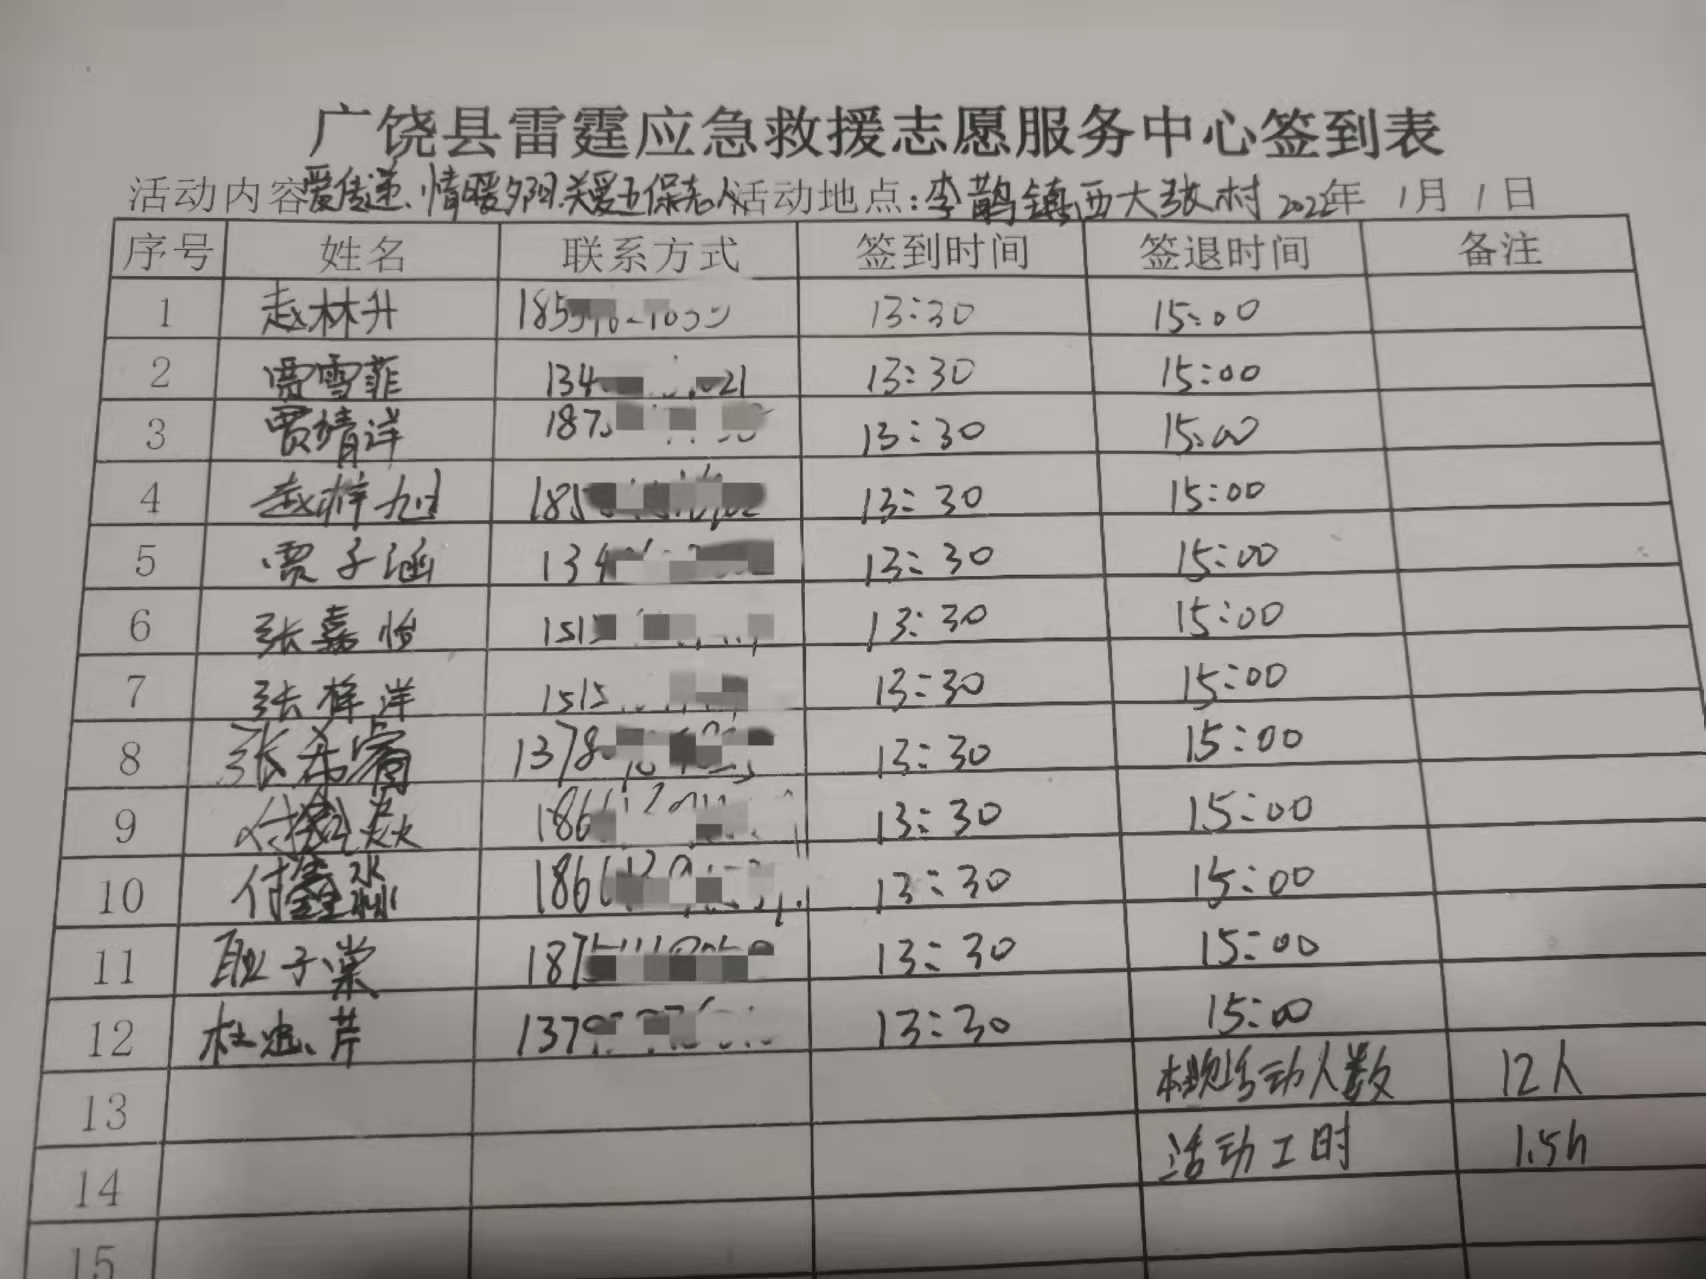 广饶县雷霆应急救援志愿服务中心签到表
活动内容爱传递、情暖夕阳.关爱五保老人活动地点:李鹊镇西大张村 2022年 1月1日
序号 姓名 联系方式 签到时间 签退时间 备注
1 赵林升 185 13:30 15:00
2 贾雪菲 134 21 13:30 15:00
3 贾靖洋 187 13:30 15:00
4 赵梓旭 185 13:30 15:00
5 贾子涵 134 13:30 15:00
6 张嘉怡 151 13:30 15:00
7 张梓洋 1515 13:30 15:00
8 张希睿 1378 13:30 15:00
9 付 焱 186 13:30 15:00
10 付鑫淼 186 13:30 15:00
11 耿子棠 187 13:30 15:00
12 杜忠芹 1379 13:30 15:00
13 本次活动人数 12人
14 活动工时 1.5h
15